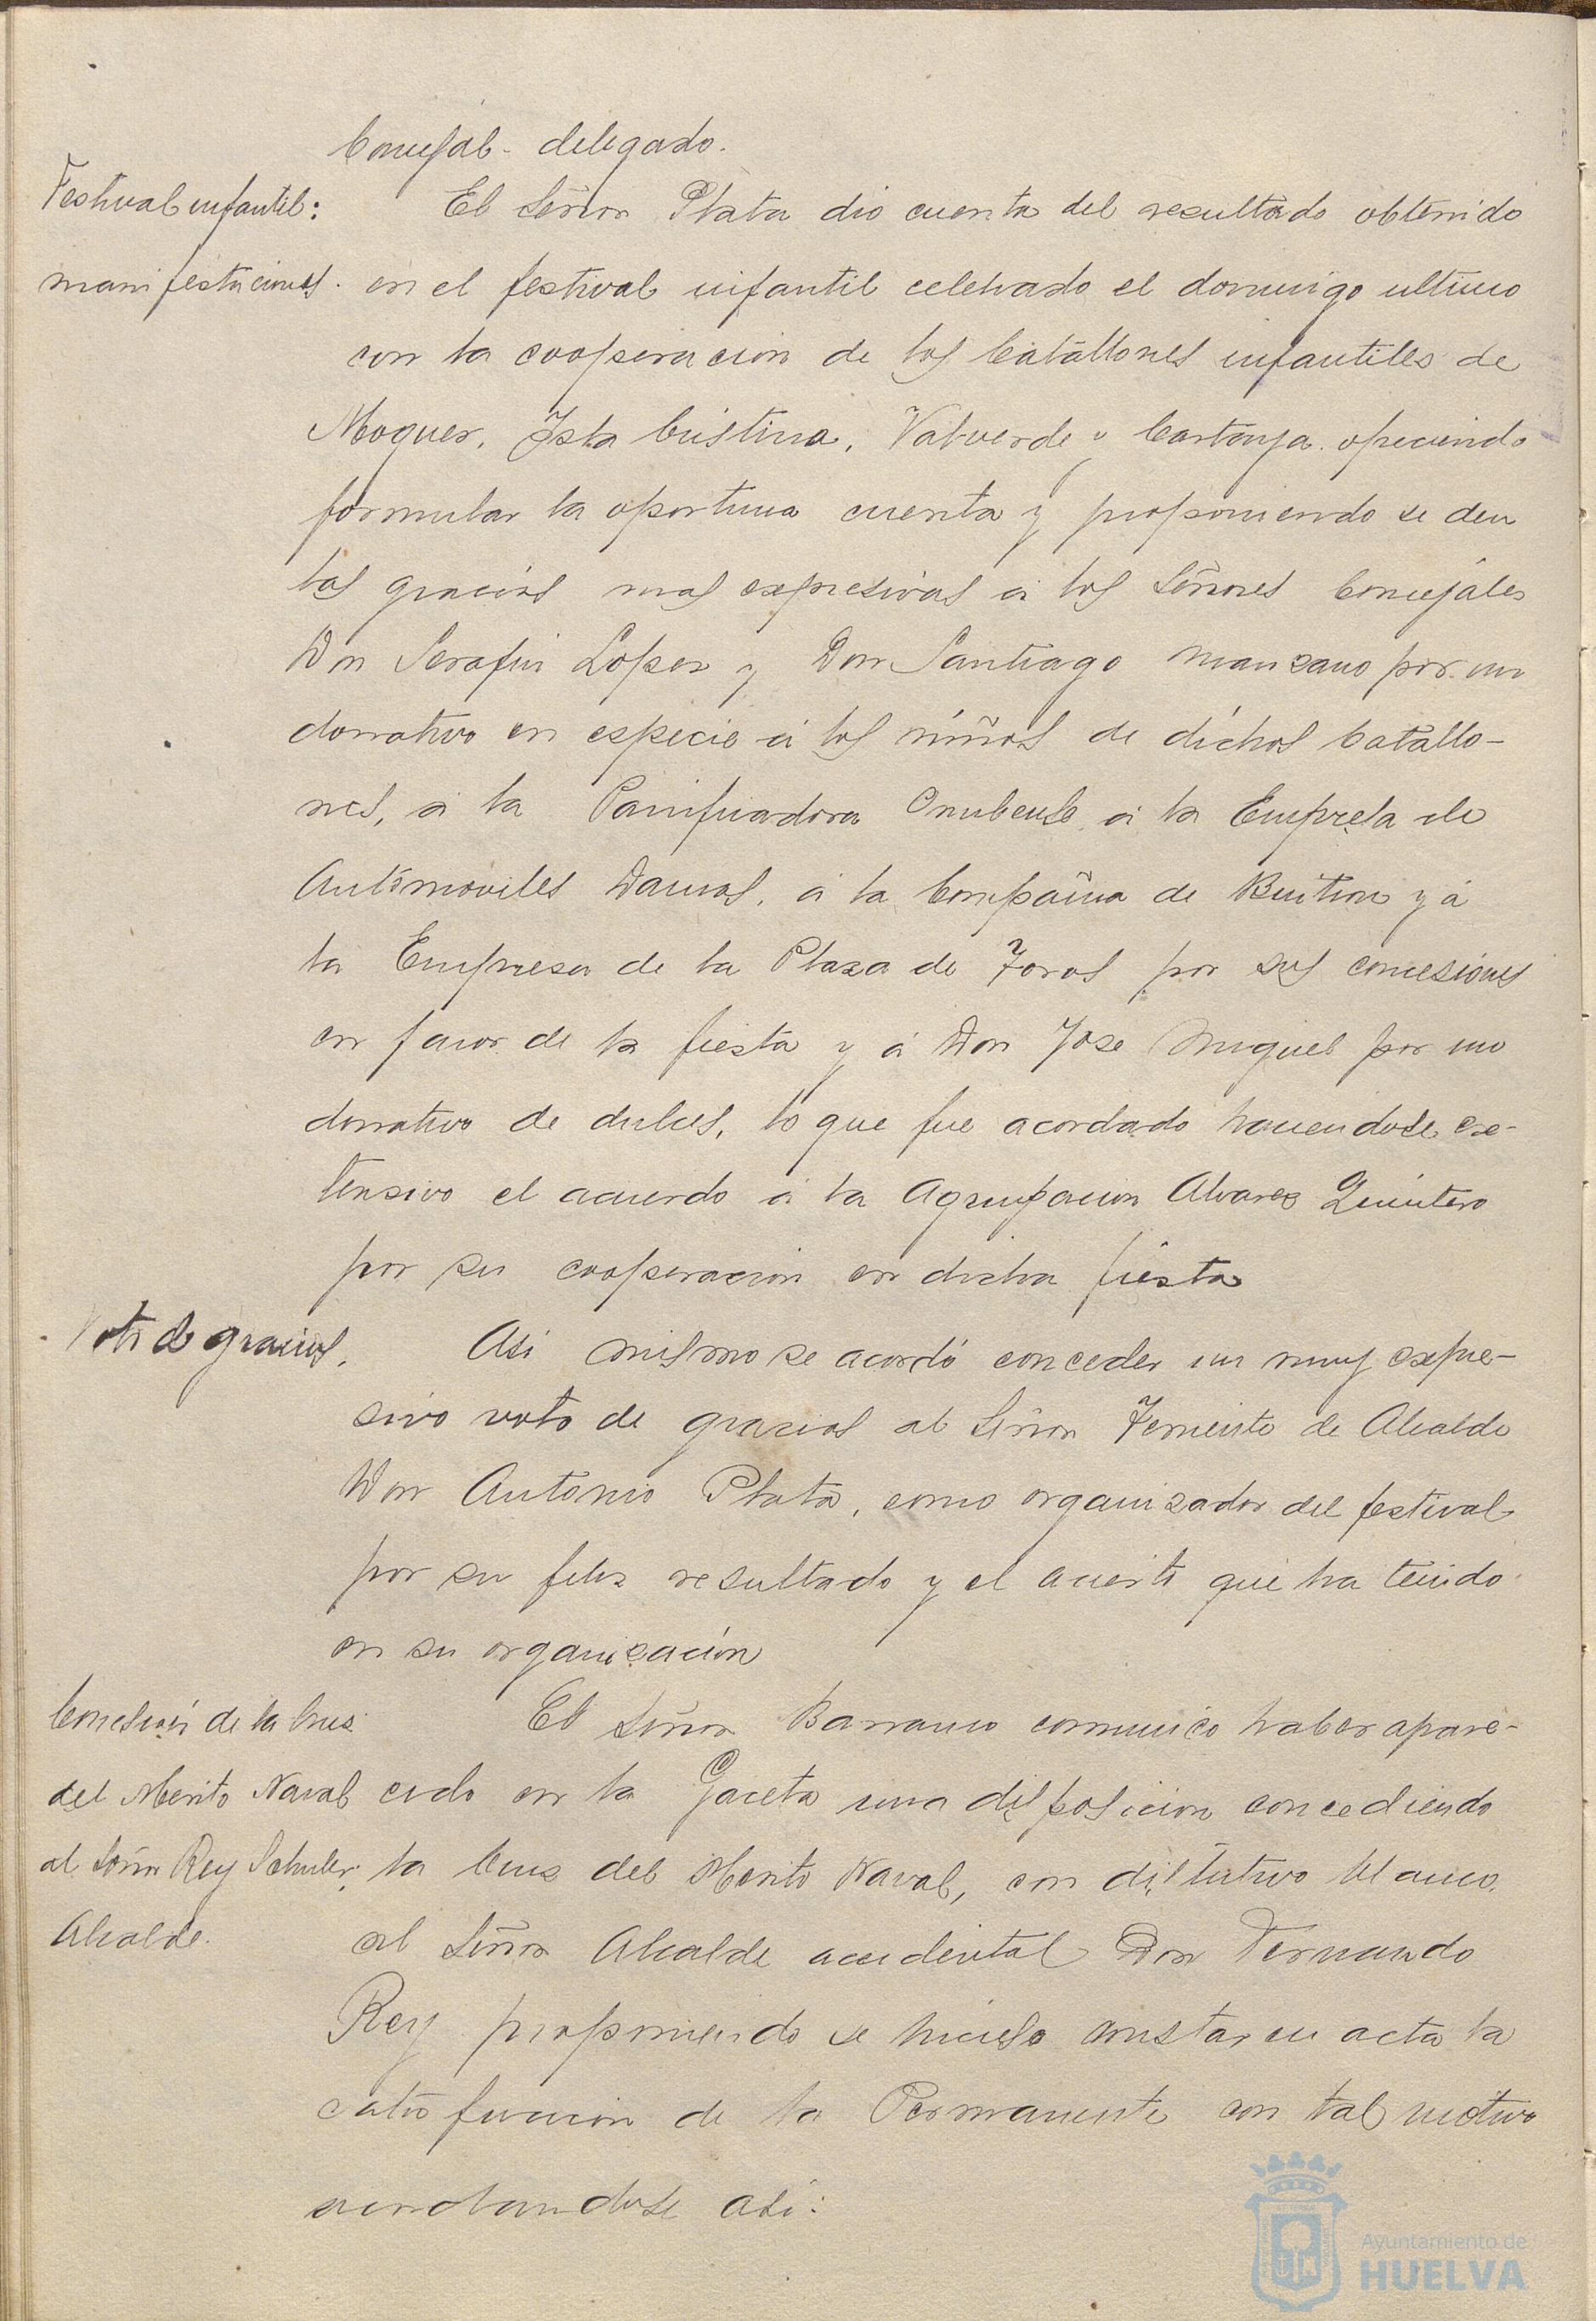 Concejal - delegado.
Festival infantil: El Señor Plata dio cuenta del resultado obtenido
manifestaciones. en el festival infantil celebrado el domingo ultimo
con la cooperacion de los batallones infantiles de
Moguer, Isla Cristina, Valverde y Cartaya ofreciendo
formular la oportuna cuenta y proponiendo se den
las gracias mas expresivas á los Señores Concejales
Don Serafin Lopez y Don Santiago Manzano por un
donativo en especie á los niños de dichos batallo-
nes, á la Panificadora Onubense á la Empresa de
Automoviles Damas, á la Compañia de Buitron y á
la Empresa de la Plaza de Toros por sus concesiones
en favor de la fiesta y á Don Jose Miguel por un
donativo de dulces, lo que fue acordado haciendose ex-
tensivo el acuerdo á la Agrupacion Alvarez Quintero
por su cooperacion en dicha fiesta
Voto de gracias. Asi mismo se acordó conceder un muy expre-
sivo voto de gracias al Señor Teniente de Alcalde
Don Antonio Plata, como organizador del festival
por su feliz resultado y el acierto que ha tenido
en su organización
Concesion de la Cruz El Señor Barranco comunico haber apare-
del Merito Naval cido en la Gaceta una disposicion concediendo
al Señor Rey Schuler. la Cruz del Merito Naval, con distintivo blanco,
Alcalde. al Señor Alcalde accidental Don Fernando
Rey proponiendo se hiciese constar en acta la
satisfaccion de la Permanente con tal motivo
acordandose asi:
Ayuntamiento de
HUELVA